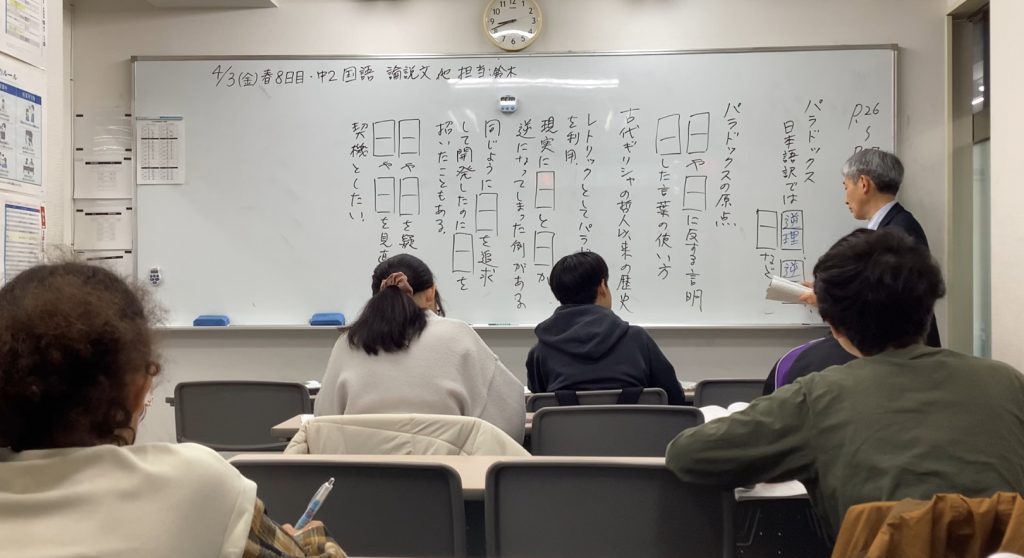 4/3(金)春8日目・中2国語 論説文 他 担当:鈴木
P.26
〜
パラドックス
日本語訳では
逆理
逆
など
パラドックスの原点
□□や□に反する言明
□□した言葉の使い方
古代ギリシャの哲人以来の歴史
レトリックとしてパラド
を利用。
現実に□と□が
逆になってしまった例がある。
同じように□□を追求
して開発したのに□□を
招いたこともある。
□□や□□を疑
□□や□□を見直
契機としたい。
12
1
2
3
4
5
6
7
8
9
10
11